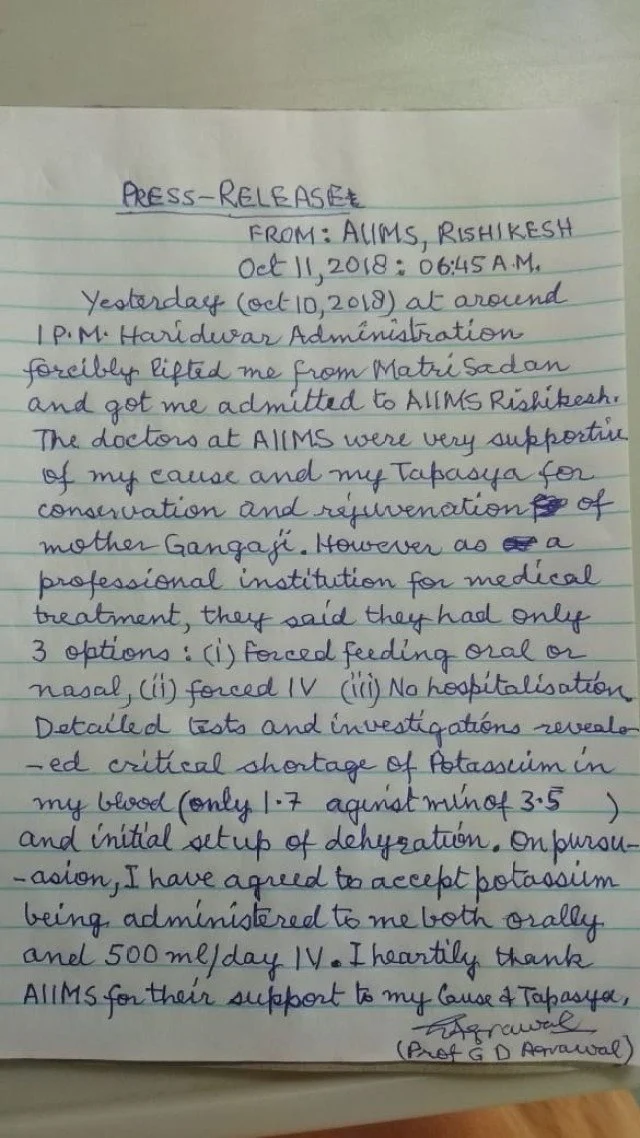 PRESS-RELEASE
FROM: AIIMS, RISHIKESH
Oct 11, 2018: 06:45 A.M.
Yesterday (oct 10, 2018) at around
1 P.M. Haridwar Administration
forcibly lifted me from Matri Sadan
and got me admitted to AIIMS Rishikesh.
The doctors at AIIMS were very supportive
of my cause and my Tapasya for
conservation and rejuvenation of
mother Gangaji. However as a
professional institution for medical
treatment, they said they had only
3 options: (i) Forced feeding oral or
nasal, (ii) forced IV (iii) No hospitalisation.
Detailed tests and investigations reveal-
-ed critical shortage of Potassium in
my blood (only 1.7 aginst min of 3.5 )
and initial setup of dehyration. On pursu-
-asion, I have agreed to accept potassium
being administered to me both orally
and 500 ml/day IV. I heartily thank
AIIMS for their support to my Cause & Tapasya.
Agrawal
(Prof G D Agrawal)